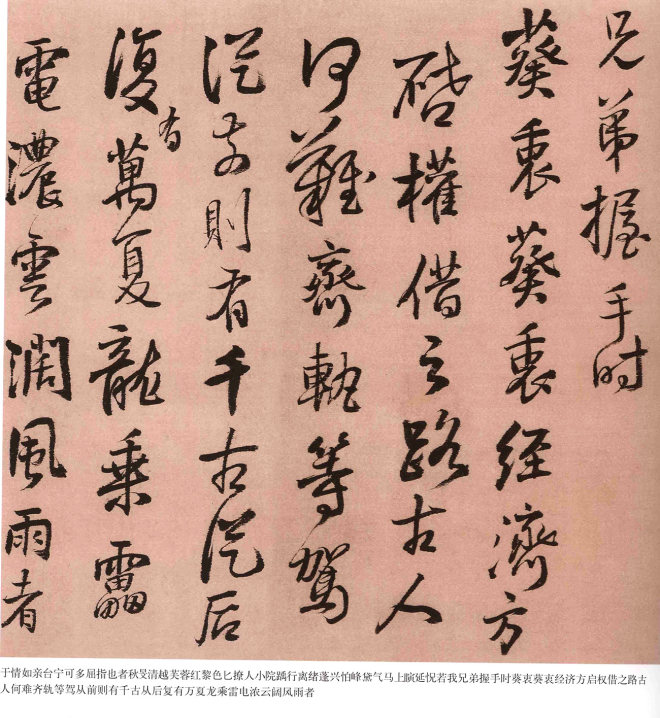 兄弟握手时
葵衷葵衷經濟方
啓權借之路古人
何難齊軌等駕
從前則有千古從后
復有萬夏龍乘雷
電濃雲濶風雨者
于情如亲台宁可多屈指也者秋旻清越芙蓉红黎色匕撩人小院踽行离绪蓬兴怕峰黛气马上延怳若我兄弟握手时葵衷葵衷经济方启权借之路古
人何难齐轨等驾从前则有千古从后复有万夏龙乘雷电浓云阔风雨者